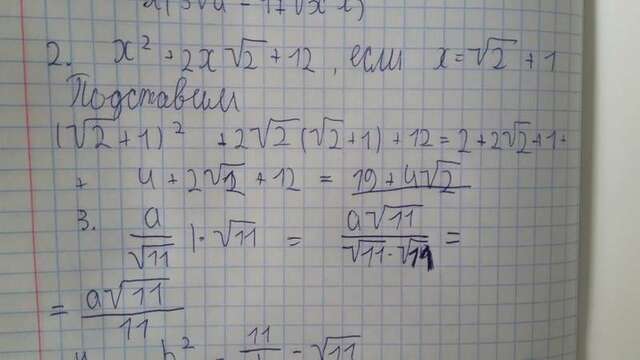 2. x² + 2x√2 + 12, если x = √2 + 1
Подставим
(√2 + 1)² + 2√2 (√2 + 1) + 12 = 2 + 2√2 + 1 +
+ 4 + 2√2 + 12 = 19 + 4√2
3. a/√11 | · √11 = a√11/√11·√11 =
= a√11/11